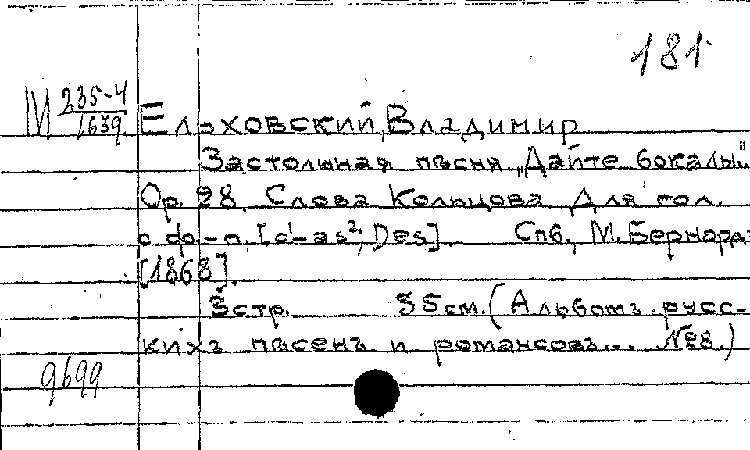 181
М 235-4
1639
Ельховский, Владимир
Застольная пѣсня „Дайте бокалы"
Op. 28. Слова Кольцова Для гол.
с ф.-п. [d¹-as², Des]. Спб., М. Бернард,
[1868].
3 стр. 35 см. (Альбомъ русс-
кихъ пѣсенъ и романсовъ... №28.)
9699